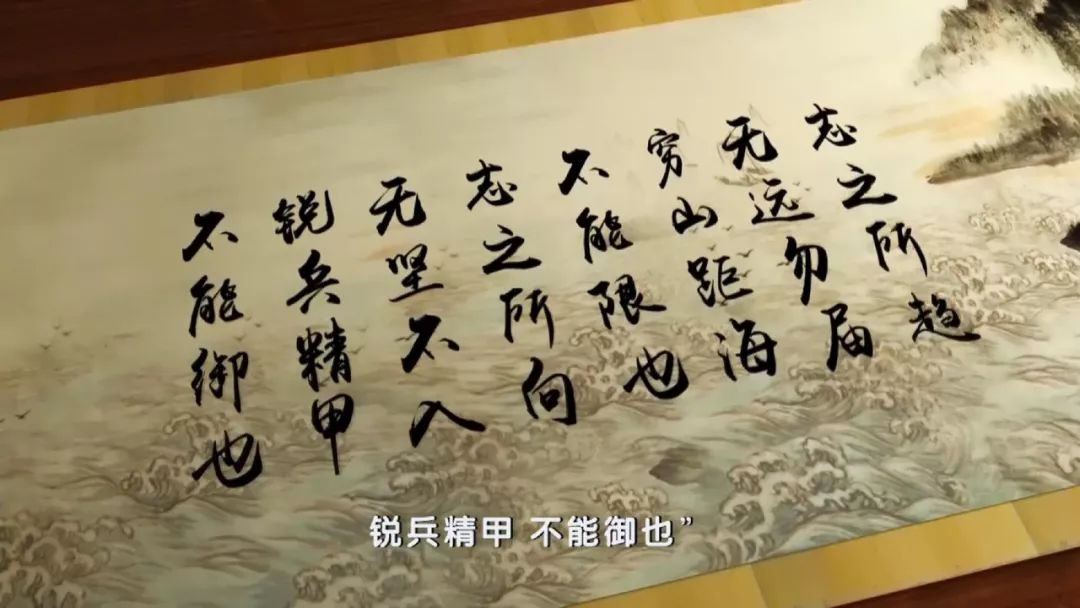 志之所趋
无远勿届
穷山距海
不能限也
志之所向
无坚不入
锐兵精甲
不能御也
锐兵精甲 不能御也”